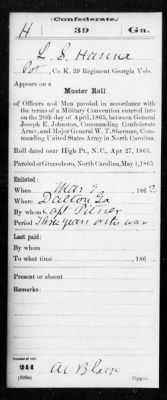 Confederate.
H 39 Ga.
L. S. Hanna
Co. K. 39 Regiment Georgia Vols.
Appears on a
Muster Roll
of Officers and Men paroled in accordance
with the terms of a Military Convention entered into
on the 26th day of April, 1865, between General
Joseph E. Johnston, Commanding Confederate
Army, and Major General W. T. Sherman, Commanding
United States Army in North Carolina.
Roll dated near High Pt., N. C., Apr. 27, 1865.
Paroled at Greensboro, North Carolina, May 1, 1865
Enlisted:
When Mar 186
Where Dalton Ga
By whom Capt
Period Three years or the war
Last paid:
By whom
To what time , 186 .
Present or absent
Remarks:
244
Copyist.